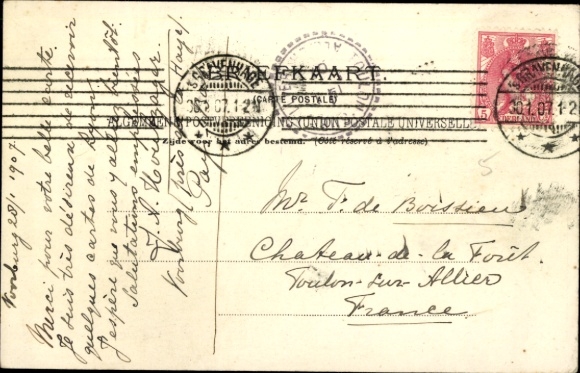 BRIEFKAART.
(CARTE POSTALE)
ALGEMEENE POSTVEREENIGING (UNION POSTALE UNIVERSELLE)
Zijde voor het adres bestemd. (Côté réservé à l'adresse)
'S-GRAVENHAGE
'S-GRAVENHAGE
NEDERLAND
5
Mr T. de Boissieu
Chateau-de-la Forêt
Toulon-sur-Allier
France
Voorburg 28/1 1907.
Merci pour votre belle carte
Je suis très désireux de recevoir
quelques cartes de Lyon
J'espère que vous y allez bientôt.
Salutations empressées
Voorburg (près de la Haye)